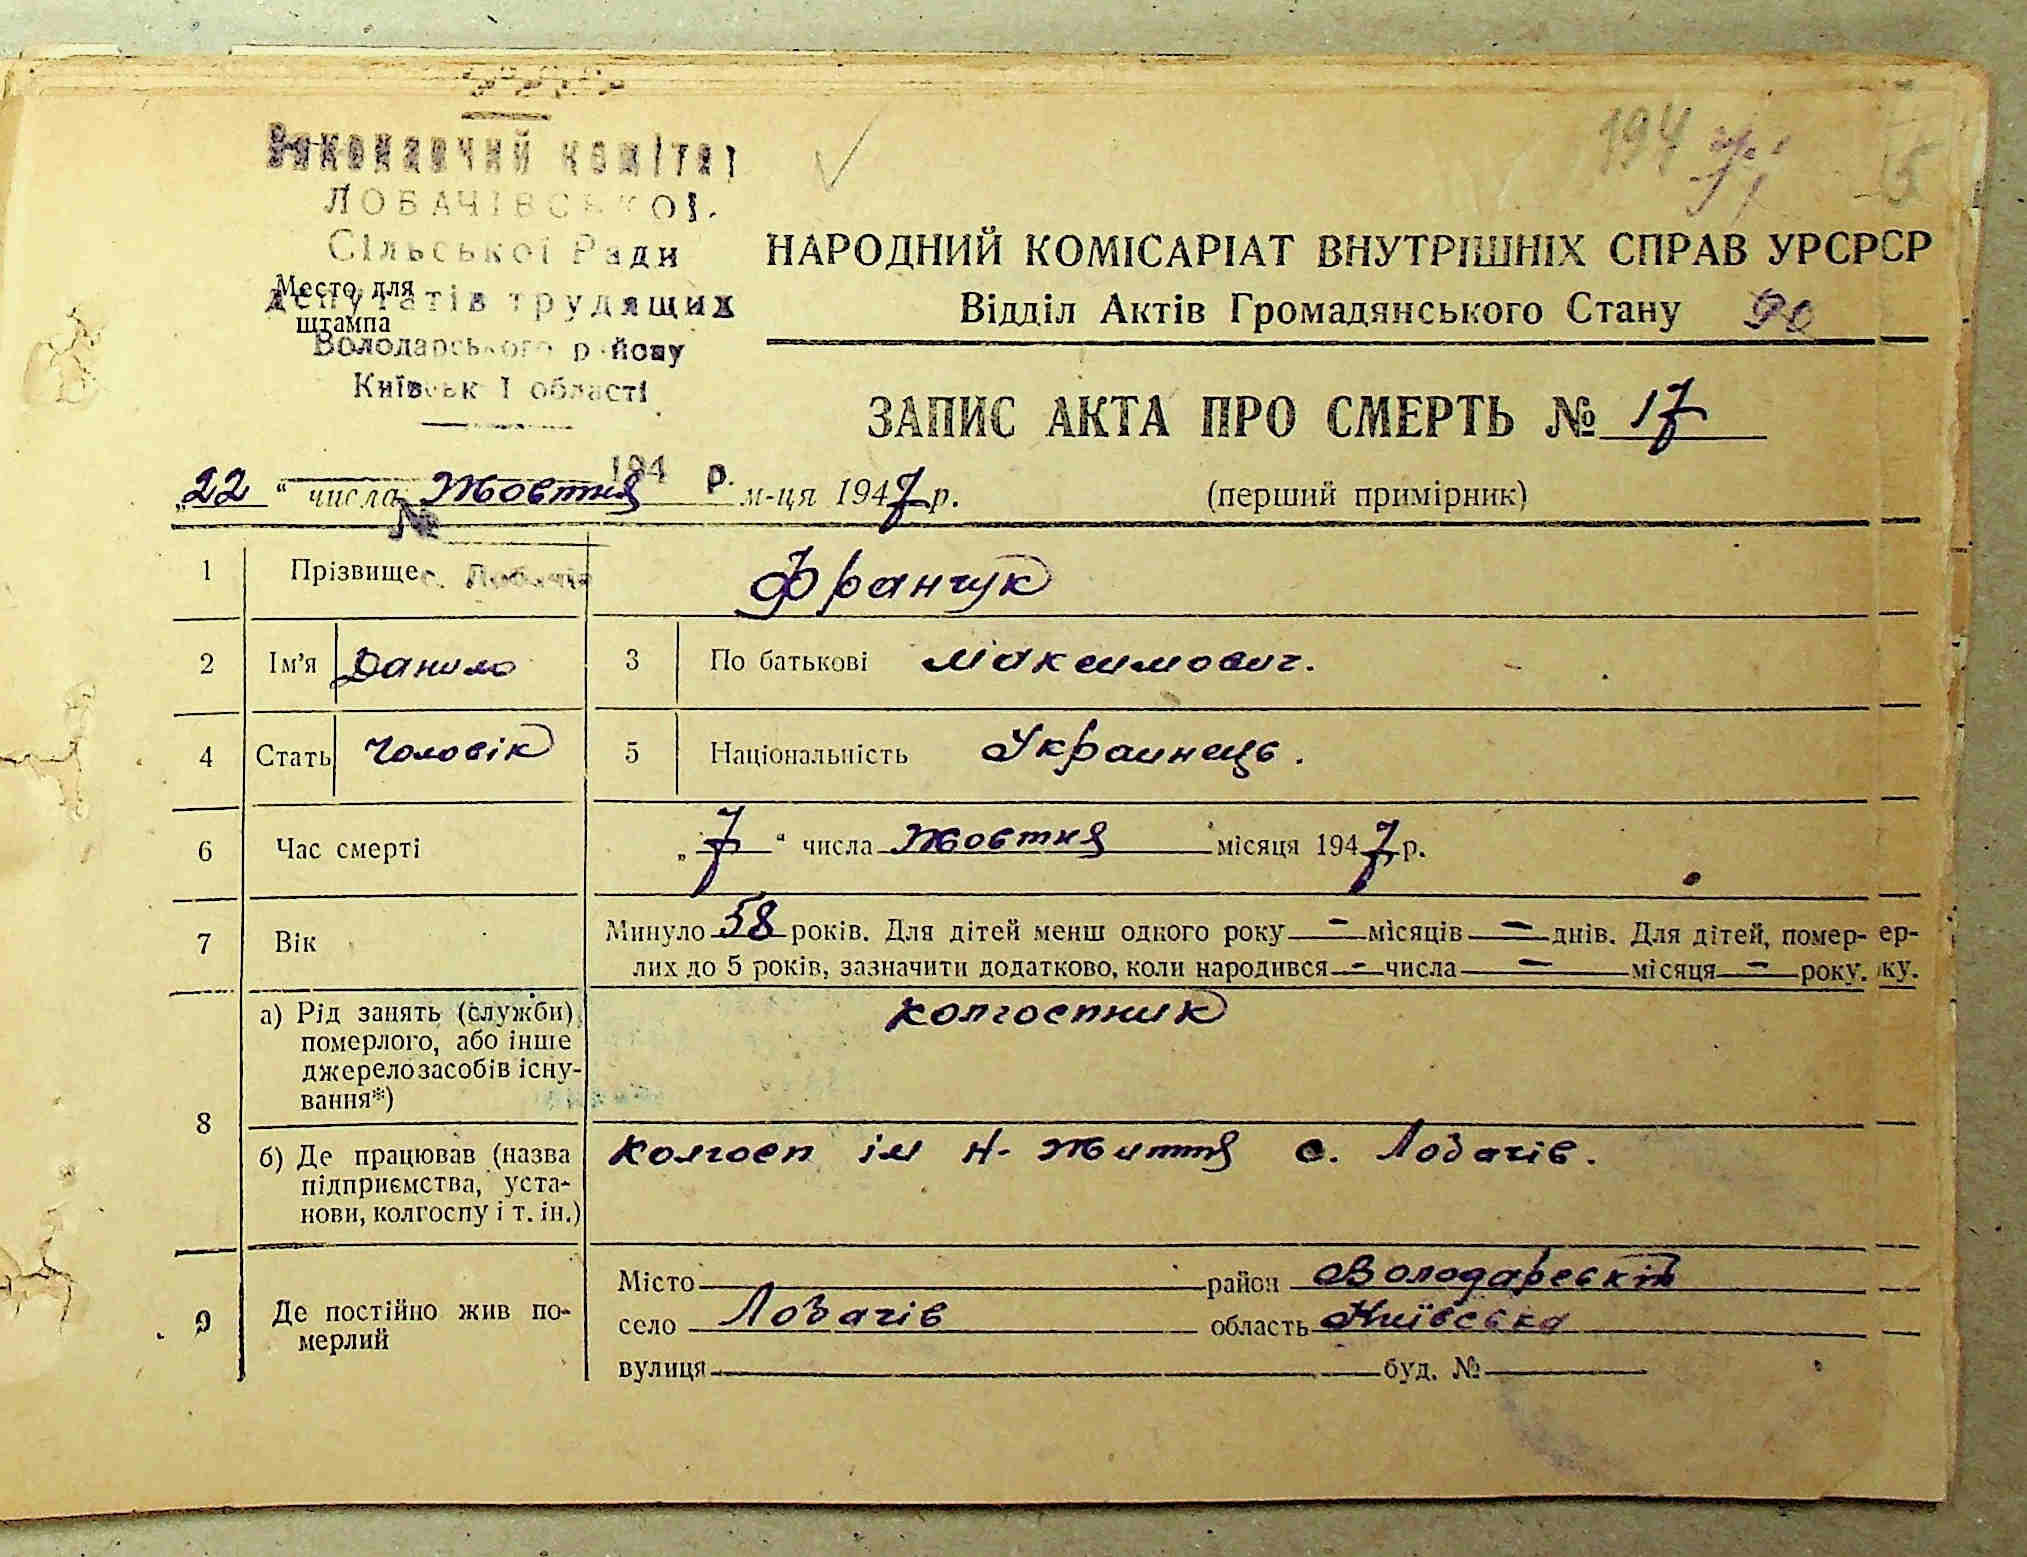 Виконавчий комітет
ЛОБАЧІВСЬКОЇ
Сільської Ради
депутатів трудящих
Володарського району
Київської області
Место для
штампа
194 р.
№
с. Лобачів
194
5
НАРОДНИЙ КОМІСАРІАТ ВНУТРІШНІХ СПРАВ УРСРСР
Відділ Актів Громадянського Стану 90
ЗАПИС АКТА ПРО СМЕРТЬ № 17
„22“ числа Жовтня м-ця 1947 р. (перший примірник)
1 Прізвище Франчук
2 Ім'я Данило 3 По батькові Максимович.
4 Стать Чоловік 5 Національність Украинець.
6 Час смерті „7“ числа Жовтня місяця 1947 р.
7 Вік Минуло 58 років. Для дітей менш одного року - місяців - днів. Для дітей, помер- ер-
лих до 5 років, зазначити додатково, коли народився - числа - місяця - року. ку.
8 а) Рід занять (служби) колгоспник
померлого, або інше
джерело засобів існу-
вання*)
б) Де працював (назва колгосп ім Н. Життя с. Лобачів.
підприємства, уста-
нови, колгоспу і т. ін.)
9 Де постійно жив по-
мерлий
Місто район Володарський
село Лобачів область Київська
вулиця буд. №